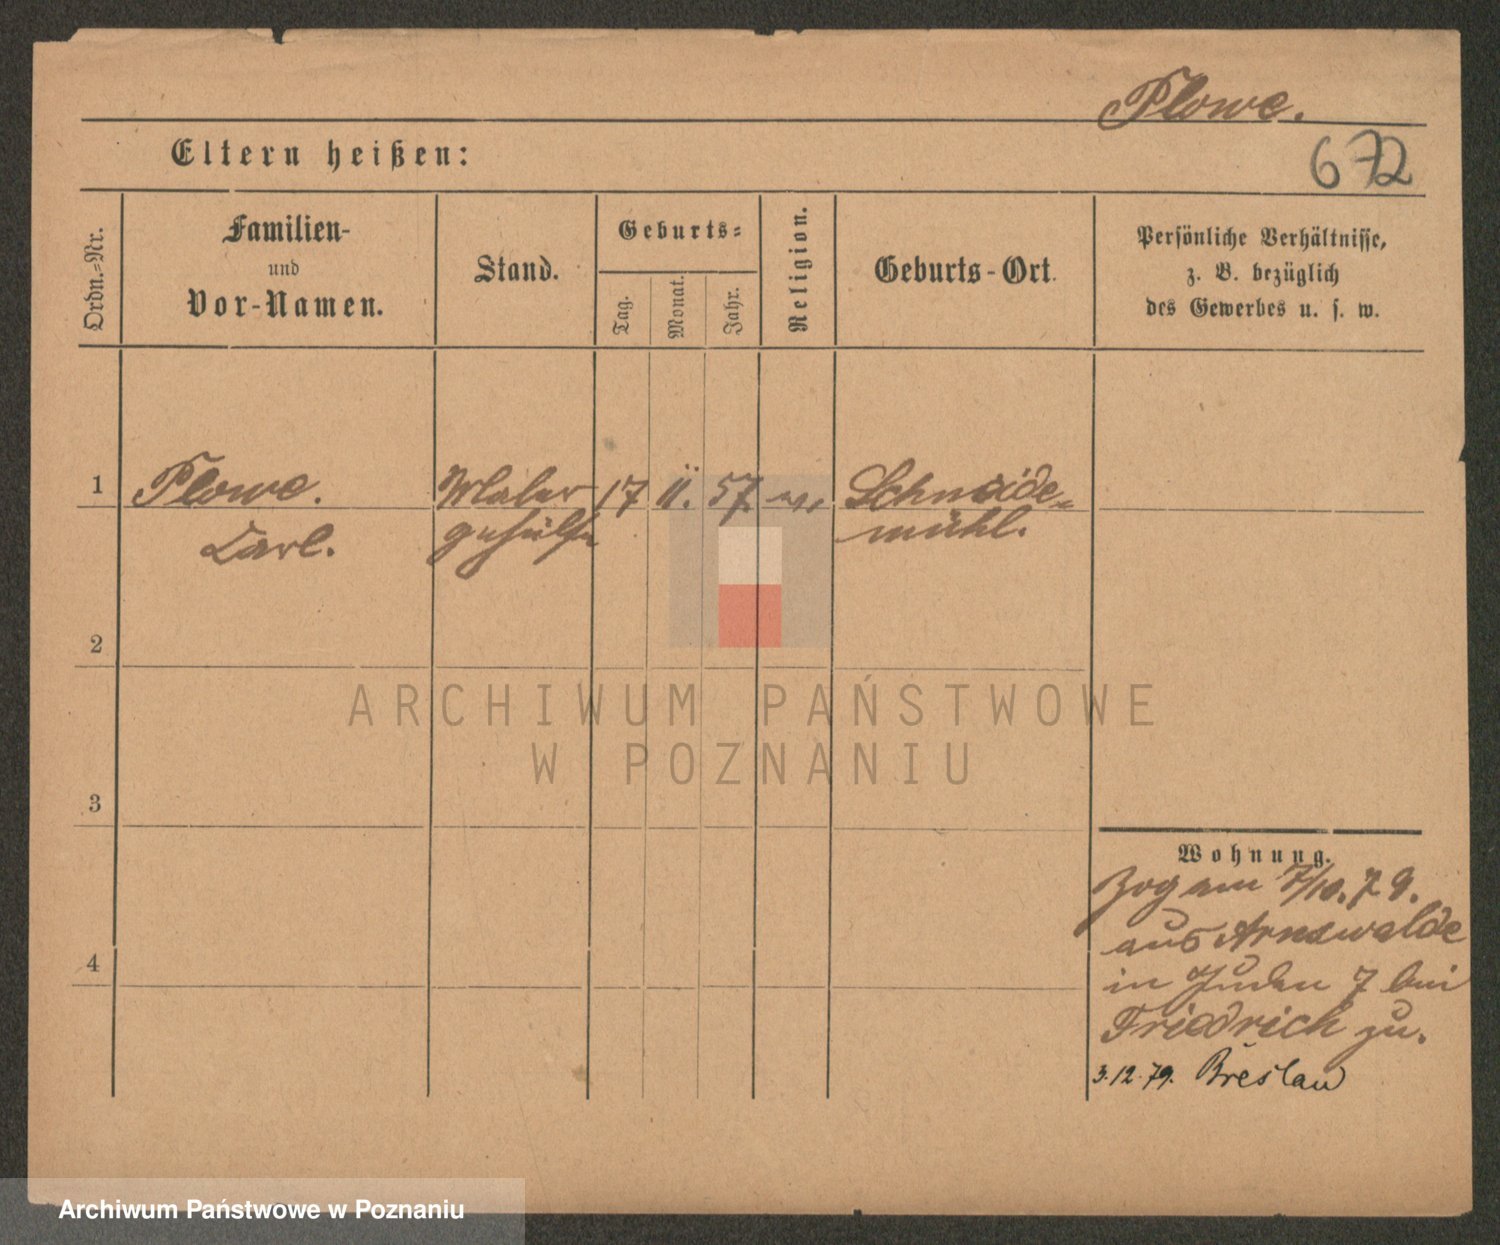 Plowe.
672
Eltern heißen:
Ordn.-Nr.
Familien-
und
Vor-Namen.
Stand.
Geburts-
Tag.
Monat.
Jahr.
Religion.
Geburts-Ort.
Persönliche Verhältnisse,
z. B. bezüglich
des Gewerbes u. s. w.
1 Plowe. Maler 17 11. 57. ev. Schneide-
Carl. gehülfe mühl.
2
3
4
Wohnung.
Zog am 7/10.79.
aus Arnswalde
in Juden 7 bei
Friedrich zu.
3.12.79. Breslau
ARCHIWUM PAŃSTWOWE
W POZNANIU
Archiwum Państwowe w Poznaniu